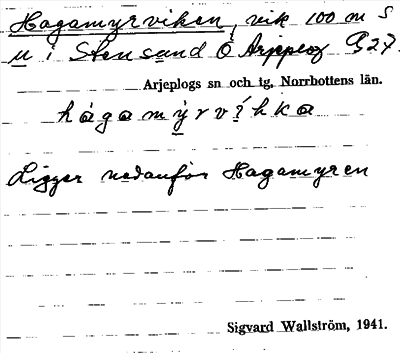 Hagamyrviken, vik 100 m S
u i Stensund Ö Arpeplog 927.
Arjeplogs sn och tg, Norrbottens län.
hágamy̱rvíhka
Ligger nedanför Hagamyren
Sigvard Wallström, 1941.